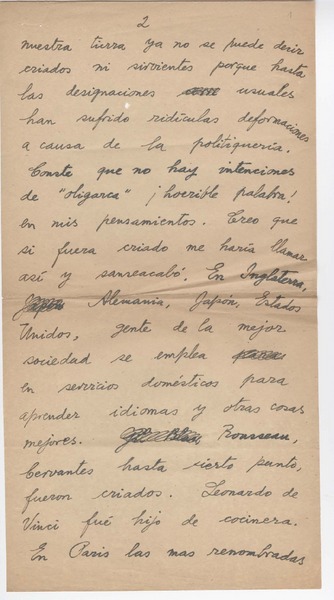 2
nuestra tierra ya no se puede decir
criados ni sirvientes porque hasta
las designaciones usuales
han sufrido ridículas deformaciones
a causa de la politiquería.
Conste que no hay intenciones
de "oligarca" ¡horrible palabra!
en mis pensamientos. Creo que
si fuera criado me haría llamar
así y sanseacabó. En Inglaterra,
Alemania, Japón, Estados
Unidos, gente de la mejor
sociedad se emplea
en servicios domésticos para
aprender idiomas y otras cosas
mejores. Rousseau,
Cervantes hasta cierto punto,
fueron criados. Leonardo de
Vinci fué hijo de cocinera.
En Paris las mas renombradas